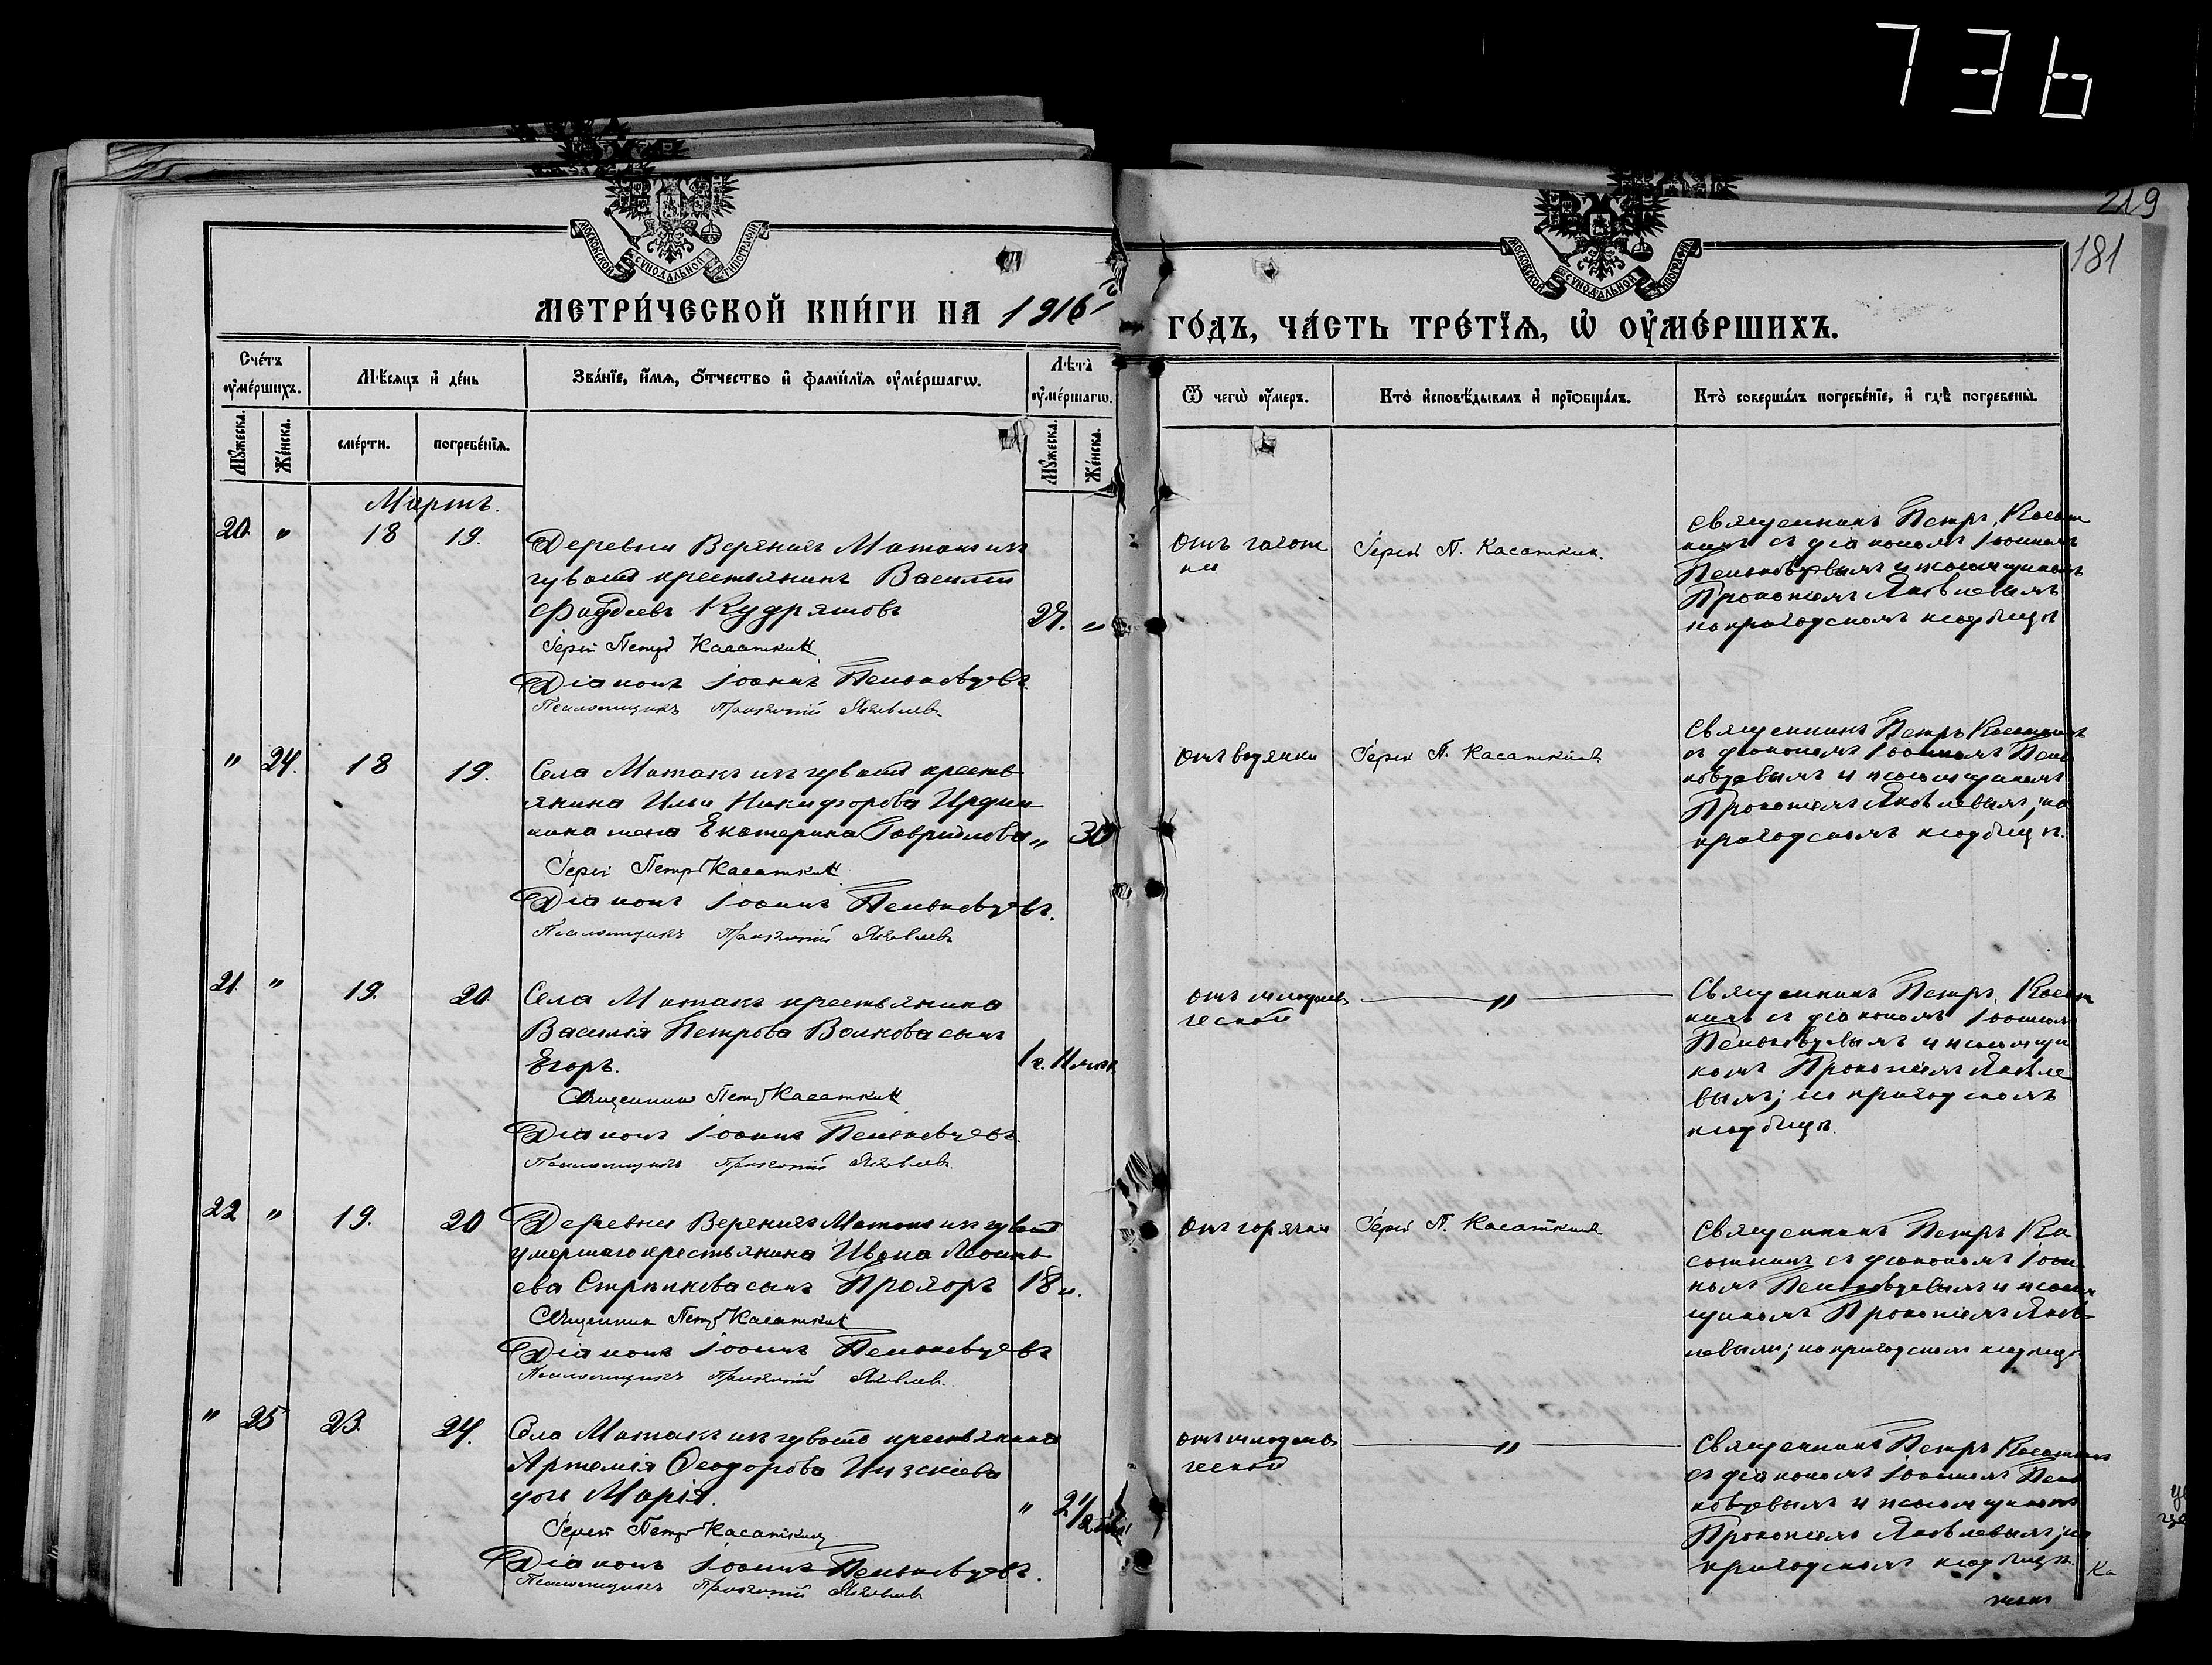 736
219
181
МОСКОВСКОЙ СѴНОДАЛЬНОЙ ТИПОГРАФІИ
МОСКОВСКОЙ СѴНОДАЛЬНОЙ ТИПОГРАФІИ
МЕТРИ́ЧЕСКОЙ КНИ́ГИ НА 1916 ГО́ДЪ, ЧА́СТЬ ТРЕ́ТЇѦ, Ѡ҆ ОУ҆МЕ́РШИХЪ.
Сче́тъ оу҆ме́ршихъ.
Мѣ́сяцъ и҆ де́нь
Зва́нїе, и҆́мѧ, ѻ҆́тчество и҆ фами́лїѧ оу҆ме́ршагѡ.
Лѣ́та̀ оу҆ме́ршагѡ.
Ѿ чегѡ̀ оу҆́меръ.
Кто̀ и҆сповѣ́дывалъ и҆ прїѻбща́лъ.
Кто̀ соверша́лъ погребе́нїе, и҆ гдѣ̀ погребены̀.
Мꙋ́жеска.
Же́нска.
сме́рти.
погребе́нїѧ.
Мꙋ́жеска.
Же́нска.
Мартъ.
20. " 18 19.
Деревни Верхнихъ Матакъ изъ
чувашъ крестьянинъ Василій
Фаддеевъ Кудряшовъ
27. "
Іерей Петръ Касаткин
Діаконъ Іоаннъ Пеньковцевъ.
Псаломщикъ Прокопій Яковлевъ.
отъ чахот
ки
Іерей П. Касаткин.
Священникъ Петръ Касат
кинъ съ діакономъ Іоанномъ
Пеньковцевымъ и псаломщикомъ
Прокопіемъ Яковлевымъ
на приходскомъ кладбищѣ
" 24. 18 19.
Села Матакъ изъ чувашъ кресть
янина Ильи Никифорова
жена Екатерина Гаврилова
" 30
Іерей Петръ Касаткин
Діаконъ Іоаннъ Пеньковцевъ.
Псаломщикъ Прокопій Яковлевъ
отъ водянки
Іерей П. Касаткинъ
Священникъ Петръ Касаткинъ
съ діакономъ Іоанномъ Пень
ковцевымъ и псаломщикомъ
Прокопіемъ Яковлевымъ; на
приходскомъ кладбищѣ.
21. " 19. 20
Села Матакъ крестьянина
Василія Петрова Волкова сынъ
Егоръ.
1 г. 11 мѣс.
Священникъ Петръ Касаткин
Діаконъ Іоаннъ Пеньковцевъ
Псаломщикъ Прокопій Яковлевъ.
отъ младен
ческой
"
Священникъ Петръ Касат
кинъ съ діакономъ Іоанномъ
Пеньковцевымъ и псаломщи
комъ Прокопіемъ Яковле
вымъ; на приходскомъ
кладбищѣ.
22 " 19. 20
Деревни Верхнихъ Матакъ изъ чувашъ
умершаго крестьянина Ивана Леонть
ева Стрѣлкова сынъ Прохоръ
18 ".
Священник Петръ Касаткин
Діаконъ Іоаннъ Пеньковцевъ
Псаломщикъ Прокопій Яковлев.
отъ горячки
Іерей П. Касаткинъ
Священникъ Петръ Ка
саткинъ съ діакономъ Іоан
номъ Пеньковцевымъ и псалом
щикомъ Прокопіемъ Яков
левымъ; на приходскомъ кладбищѣ
" 25 23. 24.
Села Матакъ изъ чувашъ крестьянина
Артемія Ѳеодорова
дочь Марія.
" 2 1/2
Іерей Петръ Касаткин
Діаконъ Іоаннъ Пеньковцевъ.
Псаломщикъ Прокопій Яковлев
отъ младен
ческой
"
Священникъ Петръ Касаткинъ
съ діакономъ Іоанномъ Пень
ковцевымъ и псаломщикомъ
Прокопіемъ Яковлевымъ; на
приходскомъ кладбищѣ.